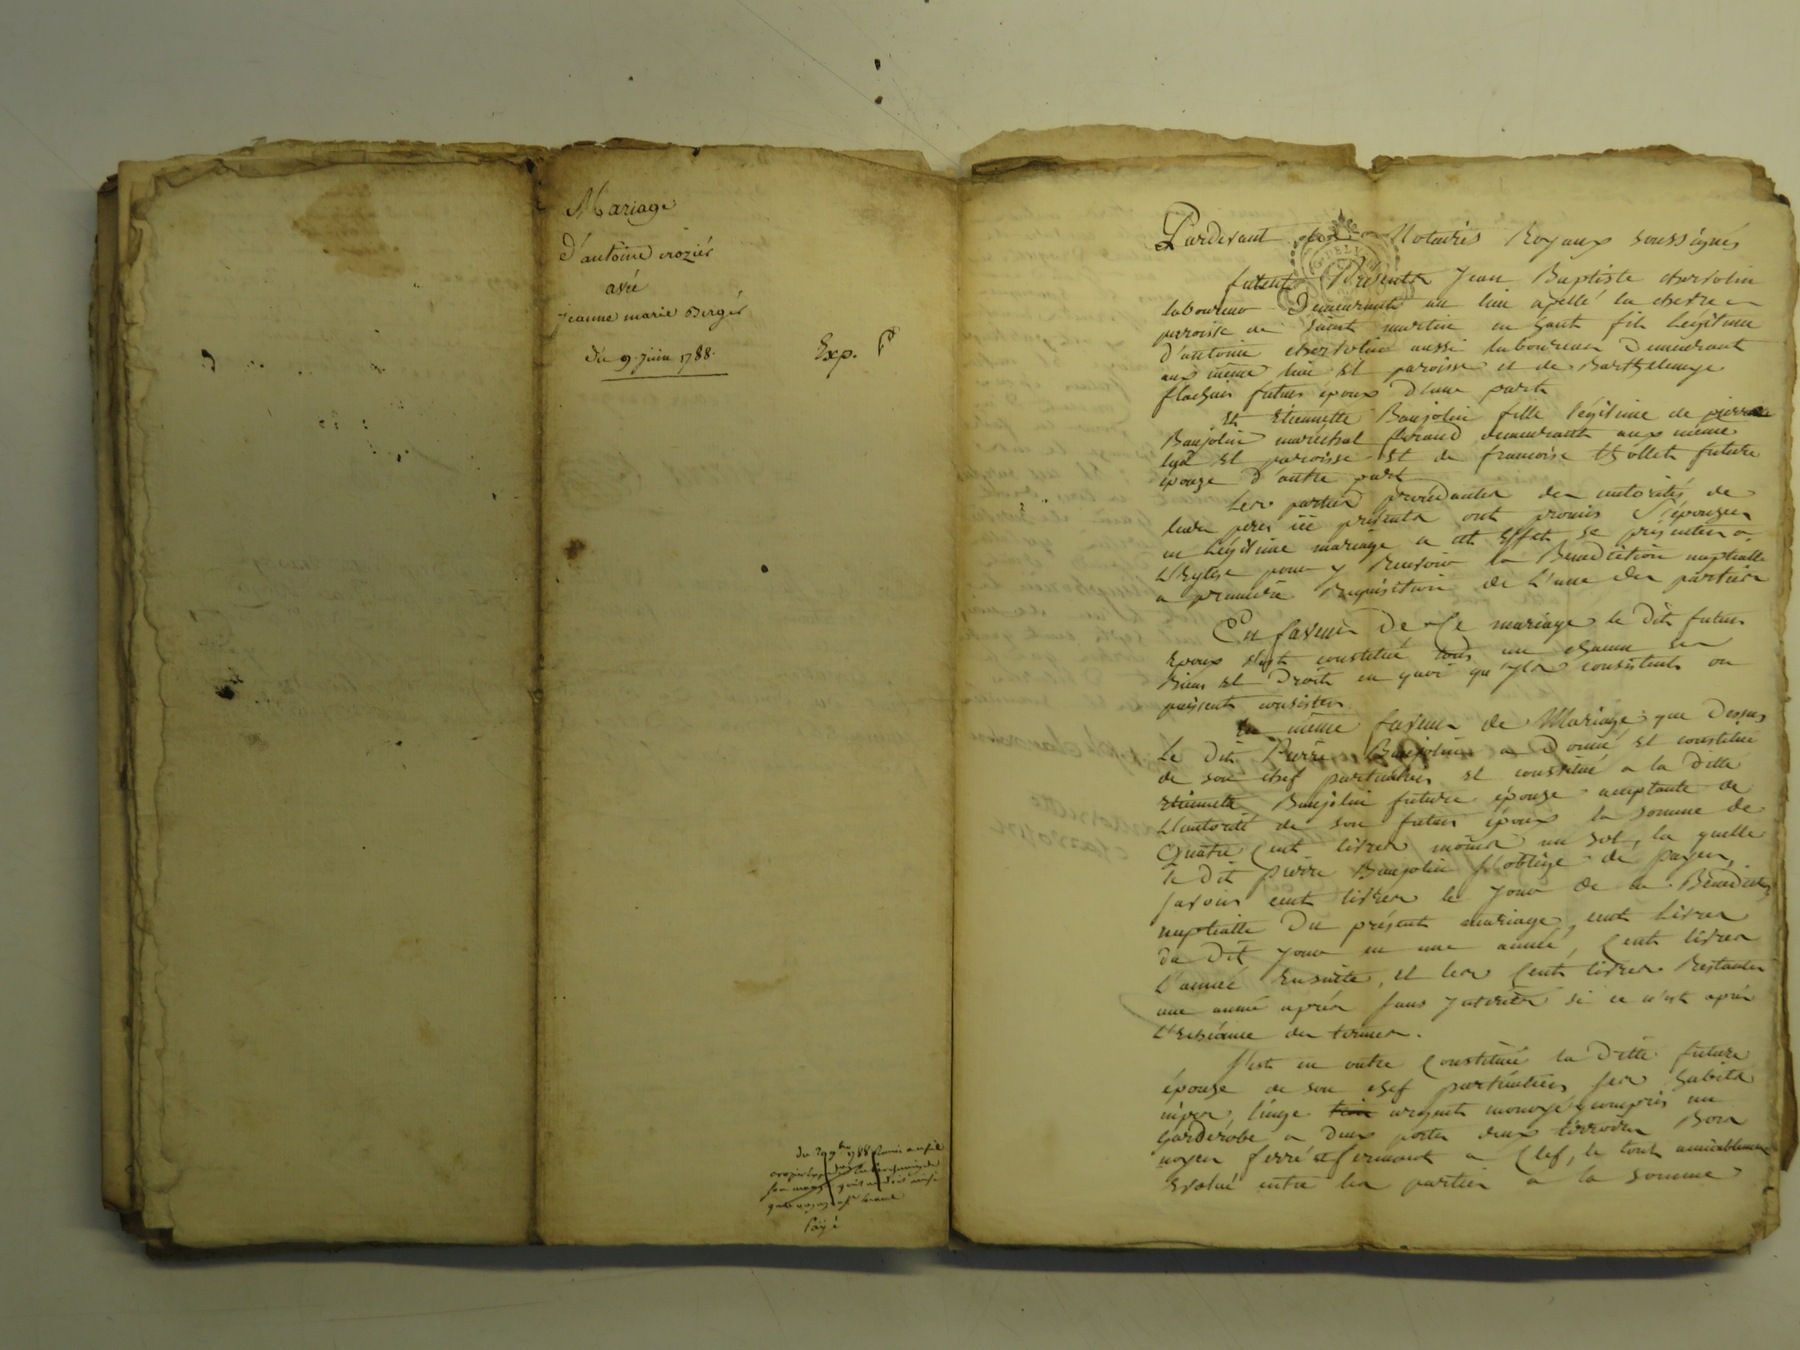 Mariage
d'antoine crozier
avec
jeanne marie Berger
du 9 juin 1788.
Exp.
payé
Pardevant Notaires Royaux soussignés
furent Présents Jean Baptiste
laboureur Demeurant au lieu apellé la
paroisse de saint martin en haut fils légitime
d'antoine aussi laboureur Demeurant
aux même lieu et paroisse et de Barthelemye
futur époux d'une part
et Etiennette Baujolin fille légitime de pierre
Baujolin marechal demeurant aux même
lieu et paroisse et de francoise future
épouze d'autre part
Les parties procédantes des autorités de
leurs peres ici présents ont promis s'épouzer
en légitime mariage a cet effet se présenter a
L'Eglise pour y Recevoir la Benediction nuptialle
a première Réquisition de L'une des parties
En faveur De Ce mariage le Dit futur
Epoux s'est constitué tous un chacun ses
Biens et Droits en quoi qu'yls consistent ou
puissent consister
En même faveur de Mariage que Dessus
Le Dit Pierre Baujolin a Donné et constitué
de son chef particulier et constitué a la Ditte
Etiennette Baujolin future épouze acceptante de
L'autorité de son futur époux la somme de
Quatre Cent livres moins un sol, la quelle
le Dit pierre Baujolin s'oblige de payer,
savoir cent livres le jour de la Bénédiction
nuptialle Du présent mariage, cent livres
du Dit jour en une année, Cent livres
L'année Ensuitte, et les Cent livres Restantes
une année après sans Interets si ce n'est après
L'Echéance des termes.
s'est en outre Constitué la Ditte future
épouze de son chef particulier ses habits
nipes, linge argent monoyé y compris un
garderobe a deux portes deux tirroirs Bois
noyer ferré et fermant a Clef, le tout amiablement
Evalué entre les parties a la somme